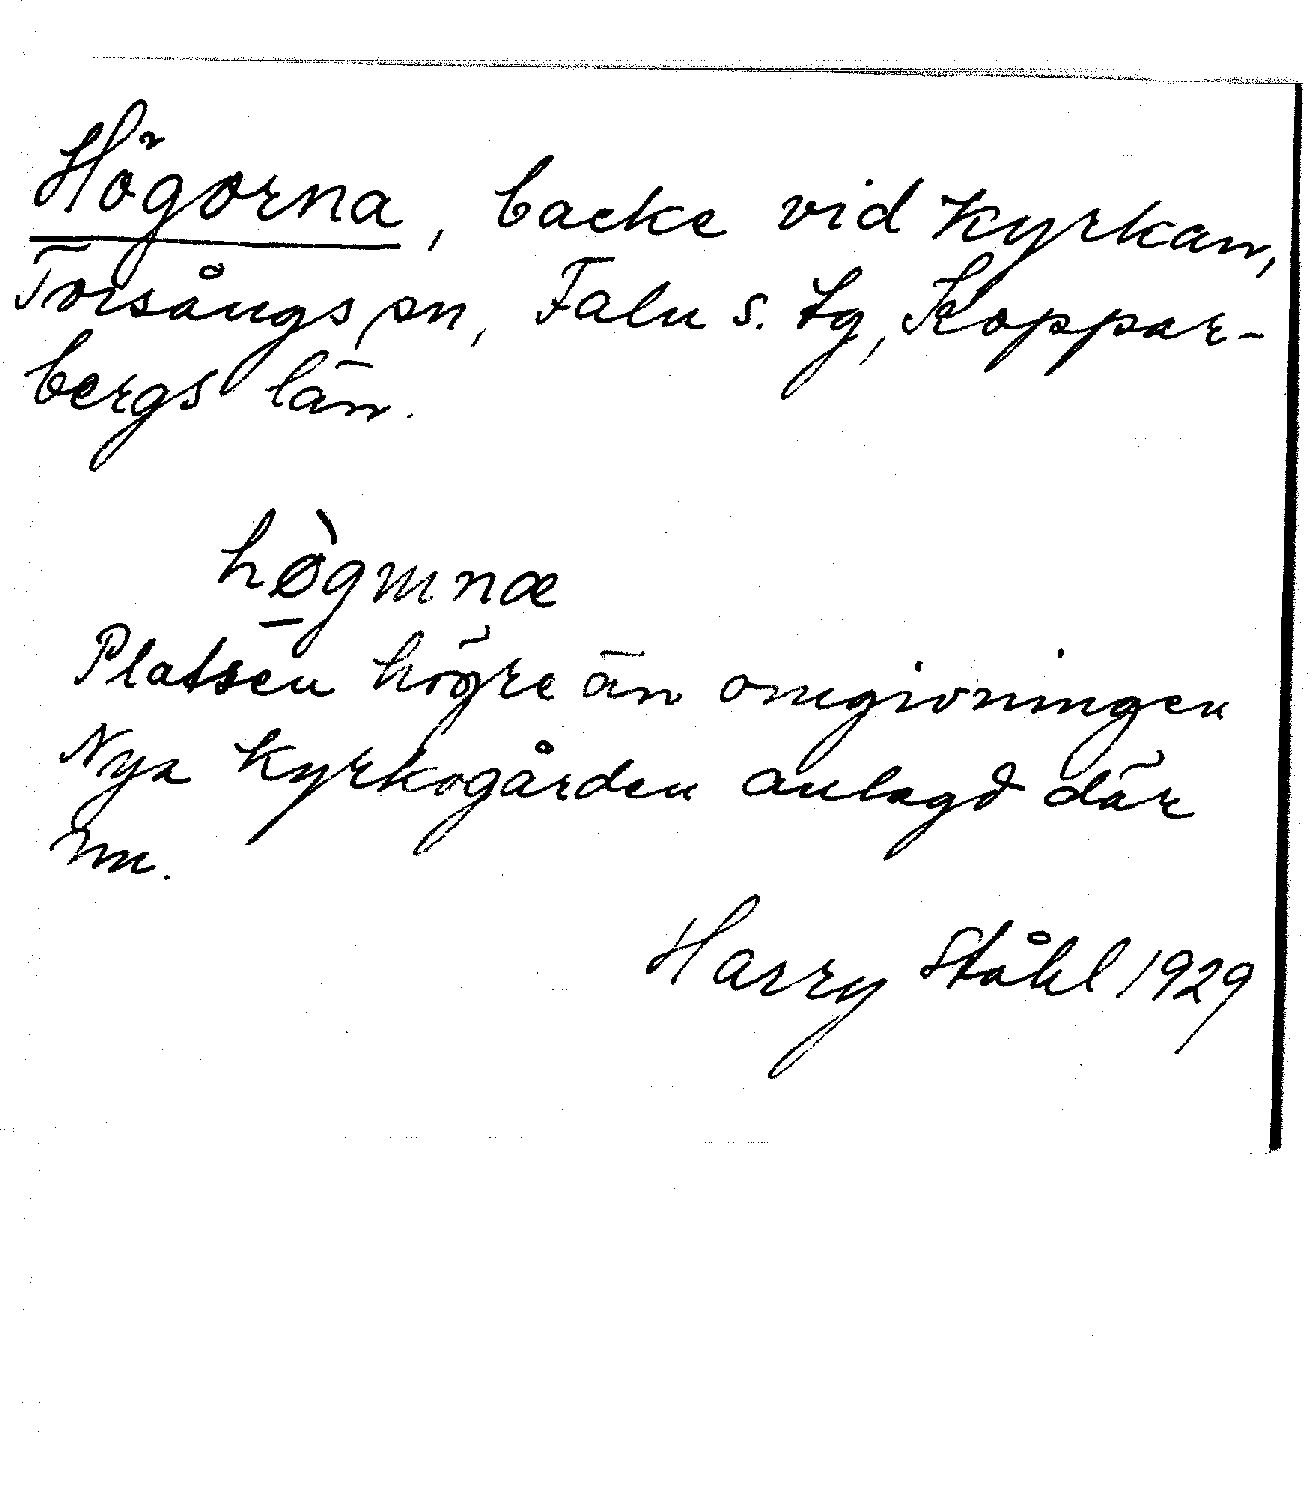 Högorna, backe vid kyrkan,
Torsångs sn, Falu s. tg, Koppar-
bergs län.
hø̀gɯnæ
Platsen högre än omgivningen
Nya kyrkogården anlagd där
nu.
Harry Ståhl 1929